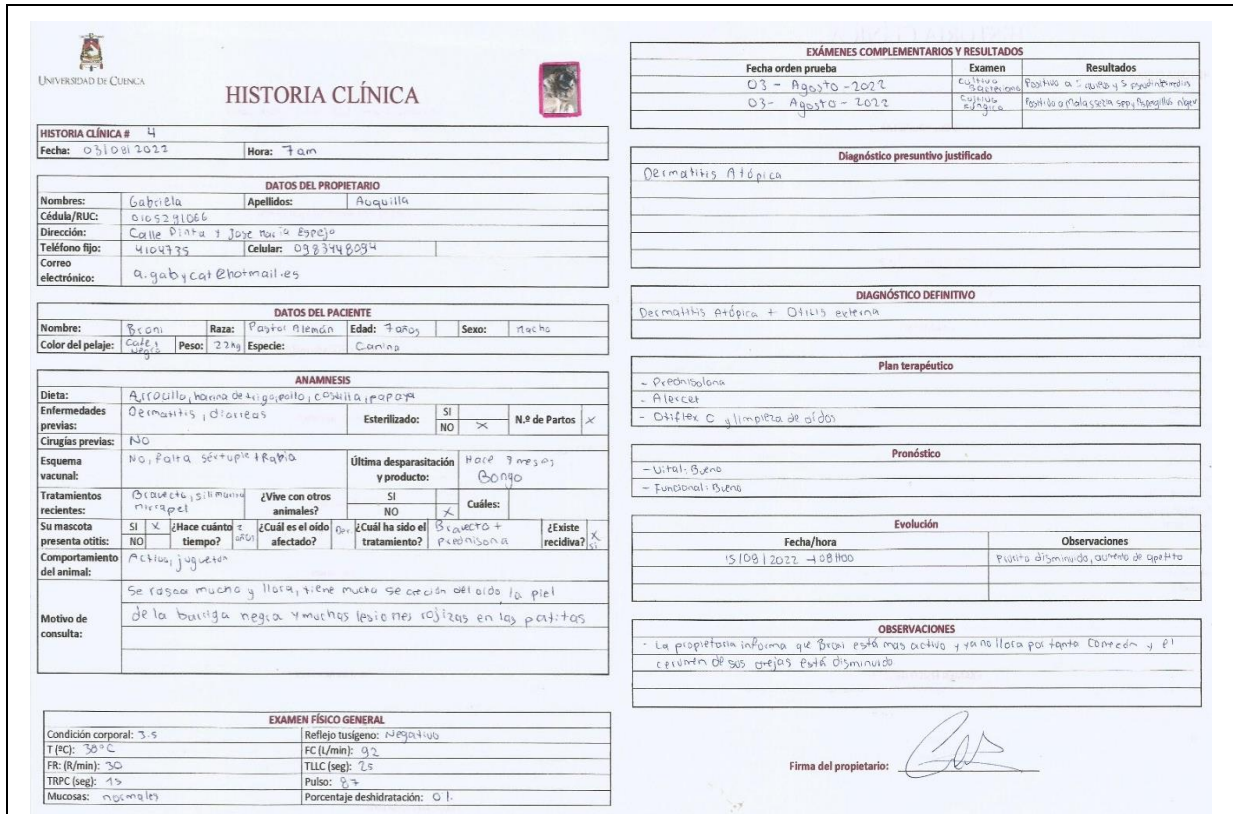 UNIVERSIDAD DE CUENCA
HISTORIA CLÍNICA
HISTORIA CLÍNICA # 4
Fecha: 03/08/2022 Hora: 7am
DATOS DEL PROPIETARIO
Nombres: Gabriela Apellidos: Auquilla
Cédula/RUC: 0105291066
Dirección: Calle Pinta y Jose Maria Espejo
Teléfono fijo: 4104735 Celular: 0983448094
Correo
electrónico: a.gabycat@hotmail.es
DATOS DEL PACIENTE
Nombre: Broni Raza: Pastor Alemán Edad: 7 años Sexo: Macho
Color del pelaje: Cafe y Negro Peso: 22kg Especie: Canino
ANAMNESIS
Dieta: Arrocillo, harina de trigo, pollo, costilla, papaya
Enfermedades
previas: Dermatitis, diarreas Esterilizado: SI
NO X N.º de Partos X
Cirugías previas: NO
Esquema
vacunal: No, falta séxtuple + Rabia Última desparasitación
y producto: Hace 7 meses
Bongo
Tratamientos
recientes: Bravecto, ¿Vive con otros
animales? SI
NO X Cuáles:
Su mascota
presenta otitis: SI X
NO ¿Hace cuánto
tiempo? 2 años ¿Cuál es el oído
afectado? Der ¿Cuál ha sido el
tratamiento? Bravecto +
Prednisona ¿Existe
recidiva? X
si
Comportamiento
del animal: Activo, juguetón
Motivo de
consulta: Se rasca mucho y llora, tiene mucha secreción del oído la piel
de la barriga negra y muchas lesiones rojizas en las patitas
EXAMEN FÍSICO GENERAL
Condición corporal: 3.5 Reflejo tusígeno: Negativo
T (ºC): 38°C FC (L/min): 92
FR: (R/min): 30 TLLC (seg): 2s
TRPC (seg): 1s Pulso: 87
Mucosas: normales Porcentaje deshidratación: 0%
EXÁMENES COMPLEMENTARIOS Y RESULTADOS
Fecha orden prueba Examen Resultados
03 - Agosto - 2022 Cultivo Bacteriano Positivo a S. aureus y S. pseudintermedius
03 - Agosto - 2022 Cultivo Fúngico Positivo a Malassezia spp y Aspergillus niger
Diagnóstico presuntivo justificado
Dermatitis Atópica
DIAGNÓSTICO DEFINITIVO
Dermatitis Atópica + Otitis externa
Plan terapéutico
- Prednisolona
- Alercet
- Otiflex C y limpieza de oídos
Pronóstico
- Vital: Bueno
- Funcional: Bueno
Evolución
Fecha/hora Observaciones
15/09/2022 → 08H00 Prurito disminuido, aumento de apetito
OBSERVACIONES
· La propietaria informa que Broni está mas activo y ya no llora por tanta Comezón y el
cerumen de sus orejas está disminuido
Firma del propietario: